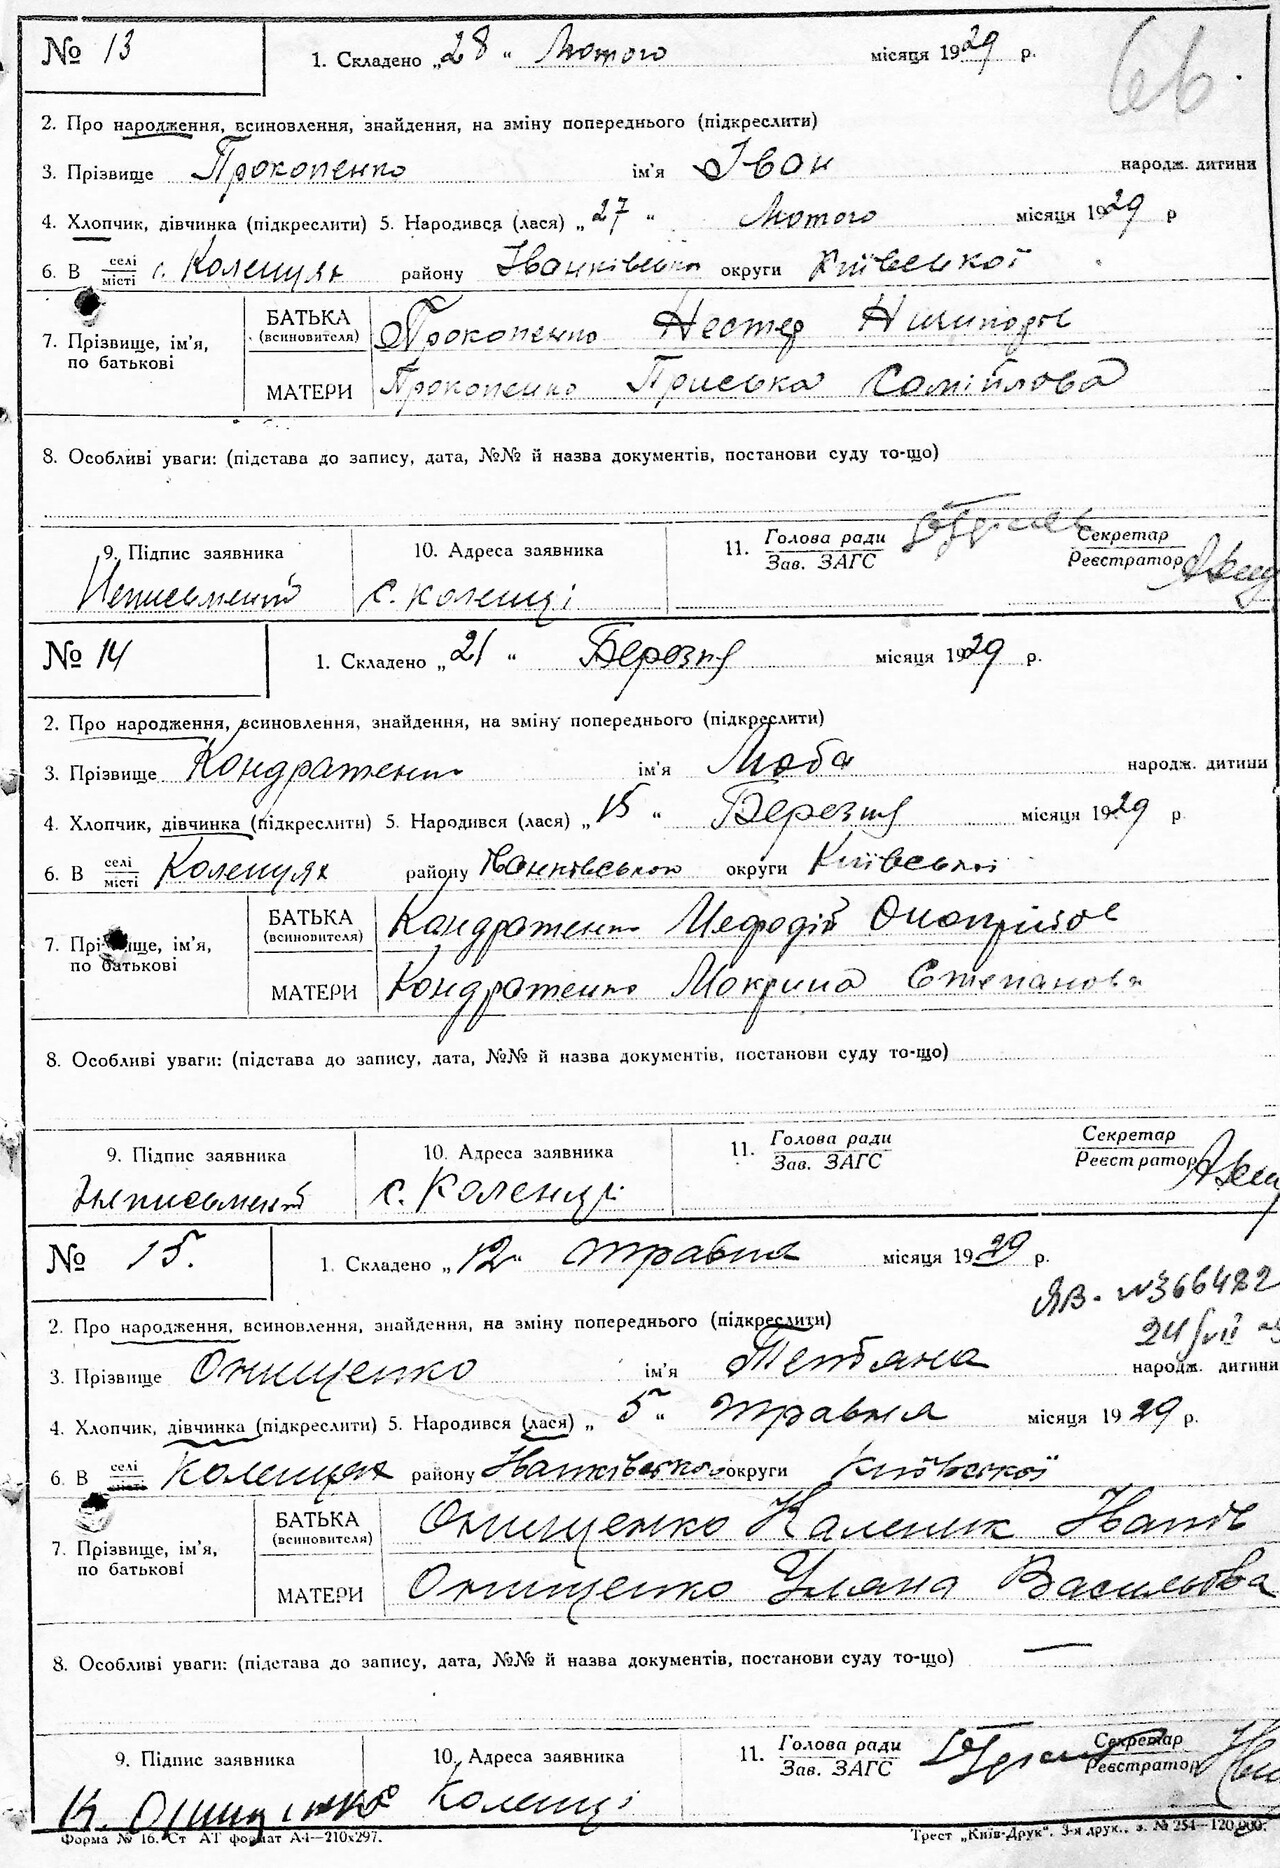 № 13
1. Складено „28“ Лютого місяця 1929 р.
66.
2. Про народження, всиновлення, знайдення, на зміну попереднього (підкреслити)
3. Прізвище Прокопенко ім'я Іван народж. дитини
4. Хлопчик, дівчинка (підкреслити) 5. Народився (лася) „27“ Лютого місяця 1929 р
6. В селі/місті с. Коленцях району Іванківсько округи Київської
7. Прізвище, ім'я, по батькові
БАТЬКА (всиновителя) Прокопенко Нестер Ничипорів
МАТЕРИ Прокопенко Приська Самійлова
8. Особливі уваги: (підстава до запису, дата, №№ й назва документів, постанови суду то-що)
9. Підпис заявника 10. Адреса заявника 11. Голова ради/Зав. ЗАГС Секретар/Реєстратор
Неписьменний с. Коленці
№ 14
1. Складено „21“ Березня місяця 1929 р.
2. Про народження, всиновлення, знайдення, на зміну попереднього (підкреслити)
3. Прізвище Кондратенко ім'я Люба народж. дитини
4. Хлопчик, дівчинка (підкреслити) 5. Народився (лася) „15“ Березня місяця 1929 р
6. В селі/місті Коленцях району Іванківського округи Київської
7. Прізвище, ім'я, по батькові
БАТЬКА (всиновителя) Кондратенко Мефодій Онопріїов
МАТЕРИ Кондратенко Мокрина Степанова
8. Особливі уваги: (підстава до запису, дата, №№ й назва документів, постанови суду то-що)
9. Підпис заявника 10. Адреса заявника 11. Голова ради/Зав. ЗАГС Секретар/Реєстратор
Неписьменний с. Коленці
№ 15.
1. Складено „12“ травня місяця 1929 р.
ЯВ - № 366482
24/VII
2. Про народження, всиновлення, знайдення, на зміну попереднього (підкреслити)
3. Прізвище Онищенко ім'я Тетяна народж. дитини
4. Хлопчик, дівчинка (підкреслити) 5. Народився (лася) „5“ травня місяця 1929 р.
6. В селі/місті Коленцях району Іванківсько округи Київської
7. Прізвище, ім'я, по батькові
БАТЬКА (всиновителя) Онищенко Каленик Іванів
МАТЕРИ Онищенко Уляна Васильова
8. Особливі уваги: (підстава до запису, дата, №№ й назва документів, постанови суду то-що) —
9. Підпис заявника 10. Адреса заявника 11. Голова ради/Зав. ЗАГС Секретар/Реєстратор
К. Онищенко Коленці
Форма № 16. Ст АТ формат А4—210x297. Трест „Київ-Друк“, 3-я друк., з. № 254—120.000.